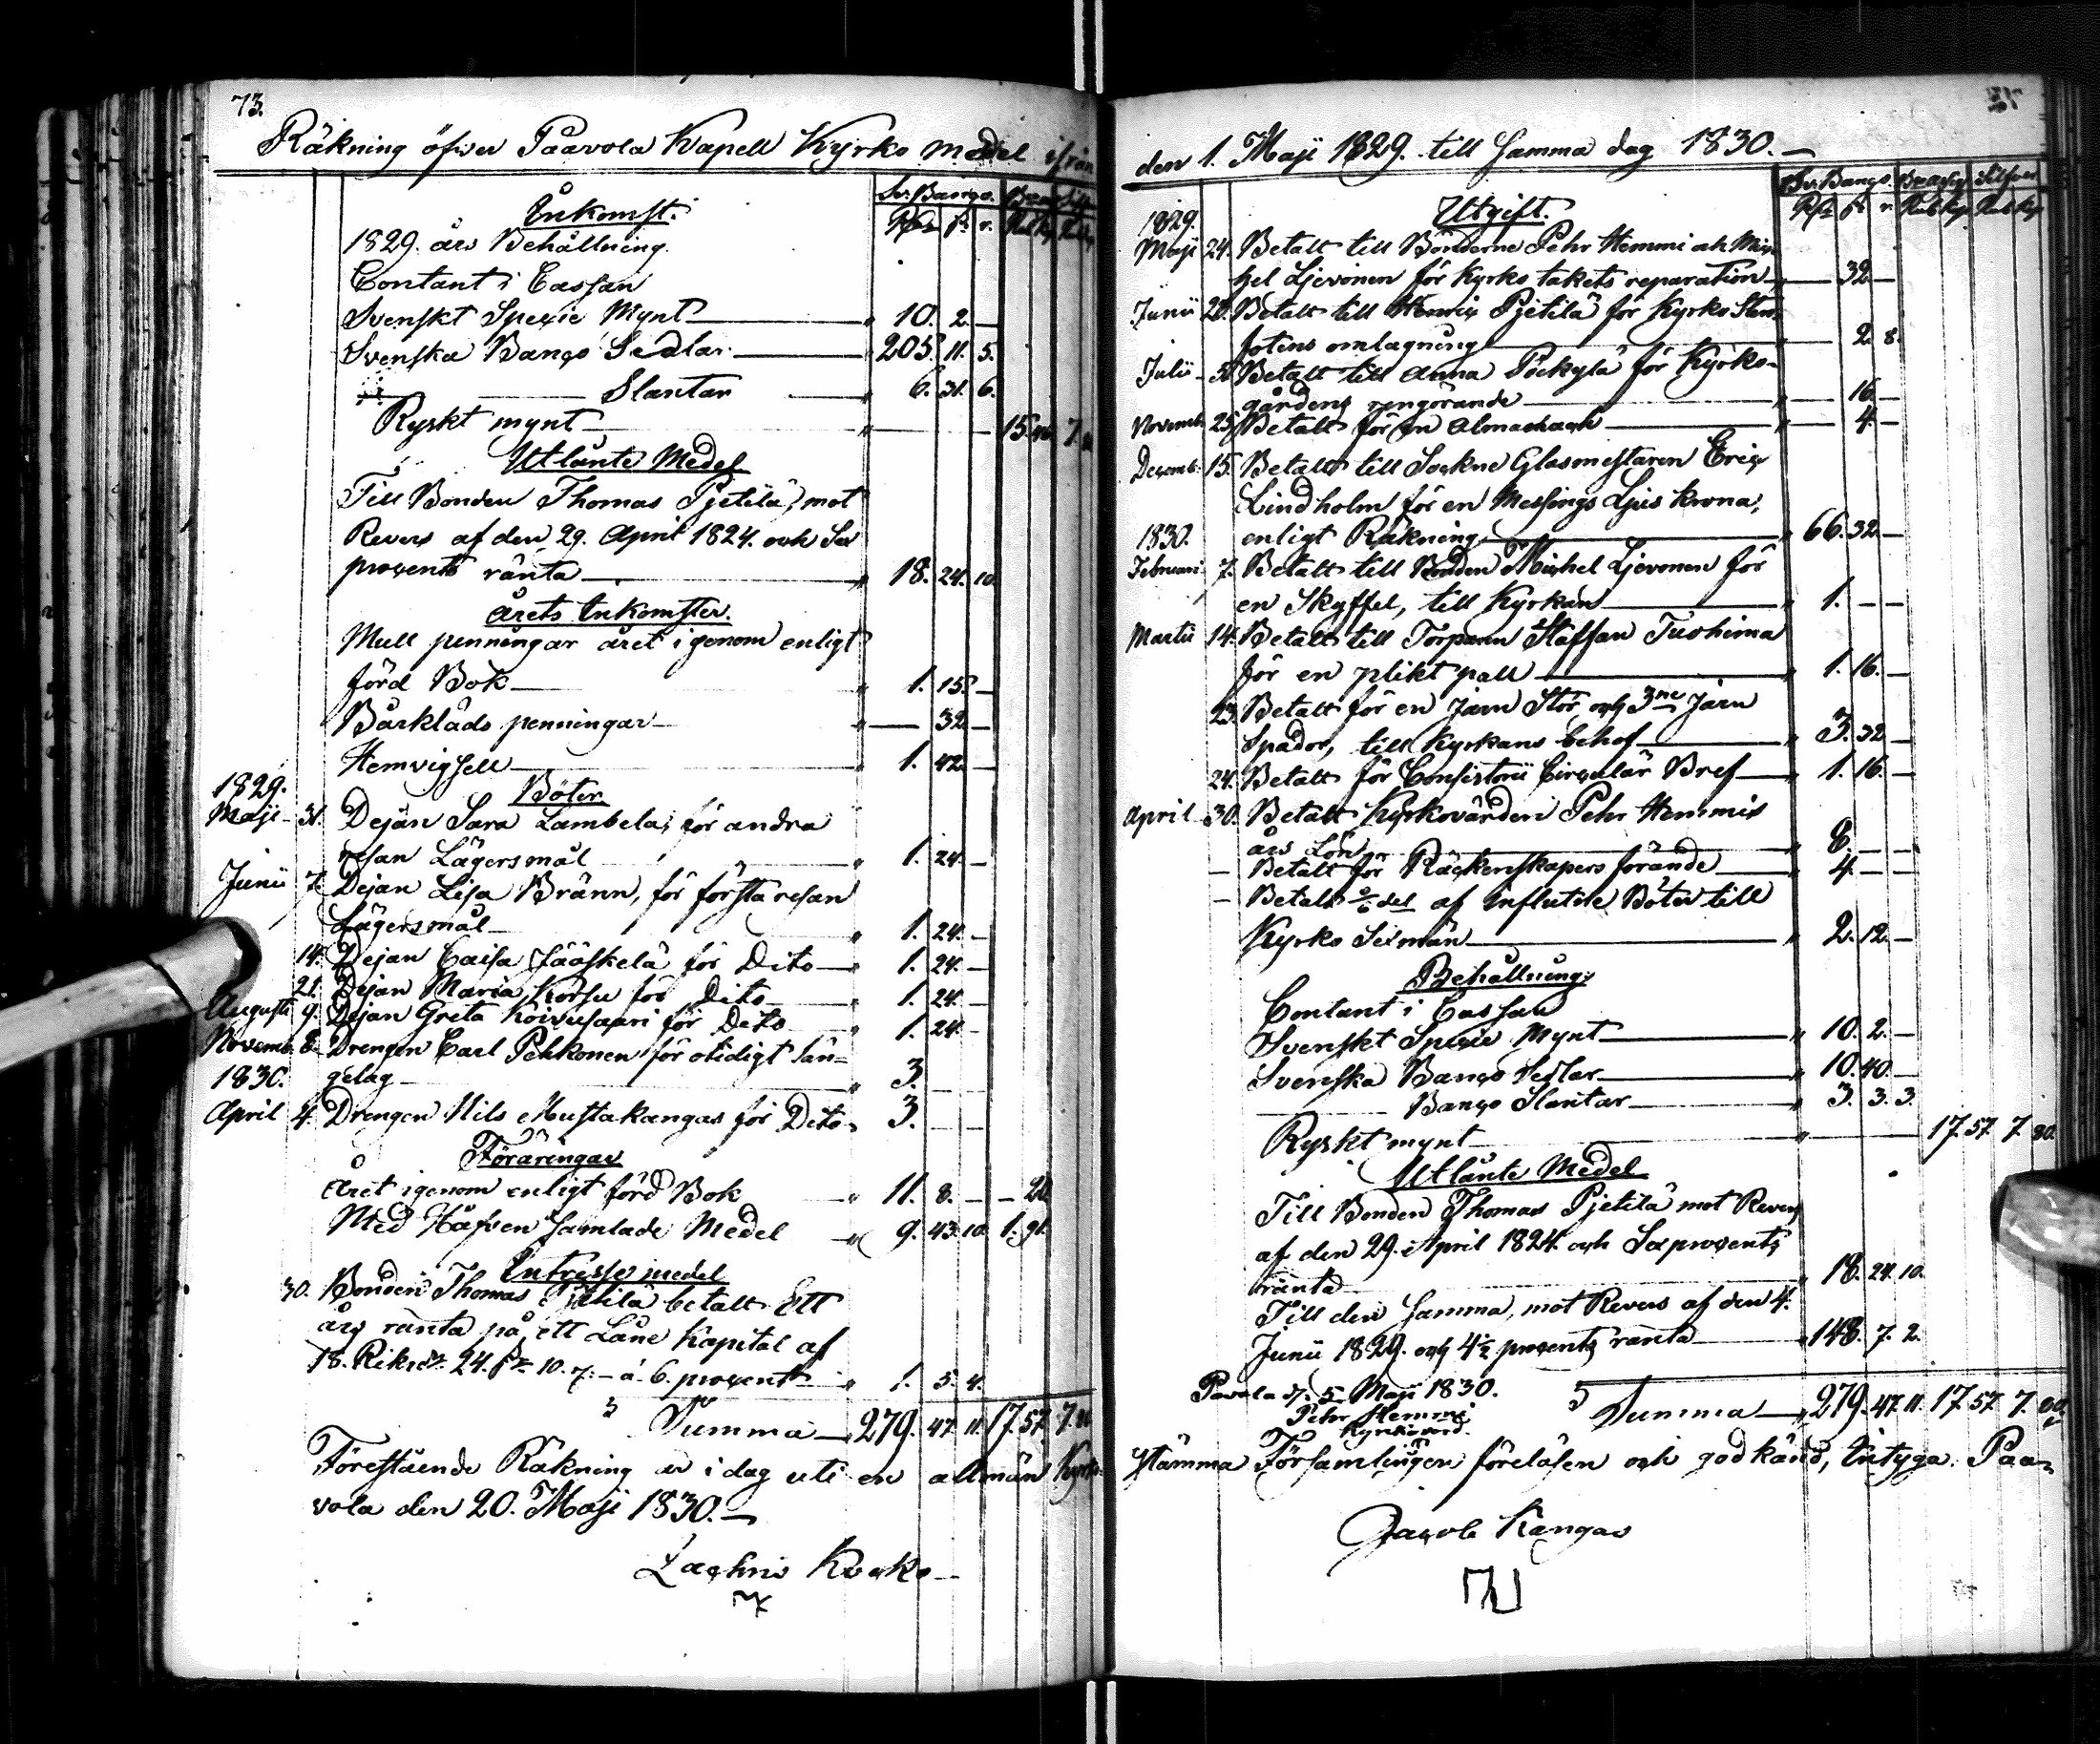 73.
Räkning öfver Paavola Kapell Kyrko medel ifrån
Sv: Banco.
Rdr ß r.
Inkomst.
1829. års Behållning.
Contant i Cassan
Svenskt Specie Mynt " 10. 2. —
Svenska Banco Sedlar " 205. 11. 5.
Slantar " 6. 31. 6.
Ryskt mynt " — 15. 7.
Utlånte Medel
Till Bonden Thomas Pjetilä, mot
Revers af den 29. April 1824. och Sex
procents ränta " 18. 24. 10.
Årets Inkomster.
Mull penningar året igenom enligt
förd Bok " 1. 15. —
Bårkläds penningar " — 32 —
Hemvigsell " 1. 42 —
1829. Böter
Maji 31. Dejan Sara Lambela, för andra
resan Lägersmål " 1. 24. —
Junii 7. Dejan Lisa Bränn, för första resan
Lägersmål " 1. 24. —
14. Dejan Caisa Jääskelä för Dito " 1. 24. —
21. Dejan Maria Korsu för Dito " 1. 24. —
Augusti 9. Dejan Greta Koivusaari för Dito " 1. 24. —
Novemb. 8. Drengen Carl Pekkonen för otidigt sän-
1830. gelag " 3. — —
April 4. Drengen Nils Mustakangas för Dito " 3. — —
Föräringar
Året igenom enligt förd Bok " 11. 8. — — 20
Med Håfven samlade Medel " 9. 43. 10. 1. 91.
Intresse medel
30. Bonden Thomas Pjetilä betalt Ett
års ränta på ett Låne Kapital af
18. Riksdr 24. ß 10. r. — à 6. procent " 1. 5. 4.
Summa — 279. 47. 11. 17. 57. 7. 80
Förestående Räkning är i dag uti en allmän Kyrko-
vola den 20. Maji 1830. —
Zachris
den 1. Maji 1829. till samma dag 1830. —
Sv: Banco. Silfver
Rdr ß r. Rub Kop Rub Kop
1829. Utgift.
Maji 24. Betalt till Bönderne Pehr Hemmi och Mic-
hel Ljevonen för Kyrko takets reparation " — 32 —
Junii 28. Betalt till Henric Pjetilä för Kyrko Sten
fotens omlagning " — 2. 8.
Julii 5. Betalt till Anna Pöckylä för Kyrko-
gårdens rengörande " — 16. —
Novemb. 25. Betalt för en Almachach " — 4. —
Decemb. 15. Betalt till Sockne Glasmestaren Eric
Lindholm för en Messings Ljus Krona,
1830. enligt Räkning " 66. 32 —
Februari 7. Betalt till Bonden Michel Ljevonen för
en Skyffel, till Kyrkan " 1. — —
Martii 14. Betalt till Torparen Staffan Tuohima
för en plikt pall " 1. 16. —
23. Betalt för en Järn Stör och 3ne Järn
Spador, till Kyrkans behof " 3. 32 —
24. Betalt för Consistorii Circulär Bref " 1. 16. —
April 30. Betalt Kyrkovärden Pehr Hemmis
års Lön " 8. — —
— Betalt för Räckenskapers förande " 4. — —
— Betalt del af influtne Böter till
Kyrko Sexmän " 2. 12. —
Behållning.
Contant i Cassan
Svenskt Specie Mynt " 10. 2. —
Svenska Banco Sedlar " 10. 40. —
Banco Slantar " 3. 3. 3.
Ryskt mynt " — 17. 57. 7. 80.
Utlånte Medel
Till Bonden Thomas Pjetilä mot Revers
af den 29. April 1824. och Sex procents
ränta " 18. 24. 10.
Till den samma, mot Revers af den 4.
Junii 1829. och 4½ procents ränta " 148. 7. 2.
Pavola d. 5. Maji 1830.
Summa " 279. 47. 11. 17. 57. 7. 80.
Pehr Hemmi
Kyrkovärd.
stämma Församlingen föreläsen och godkänd, intyga. Paa-
Jacob Kangas